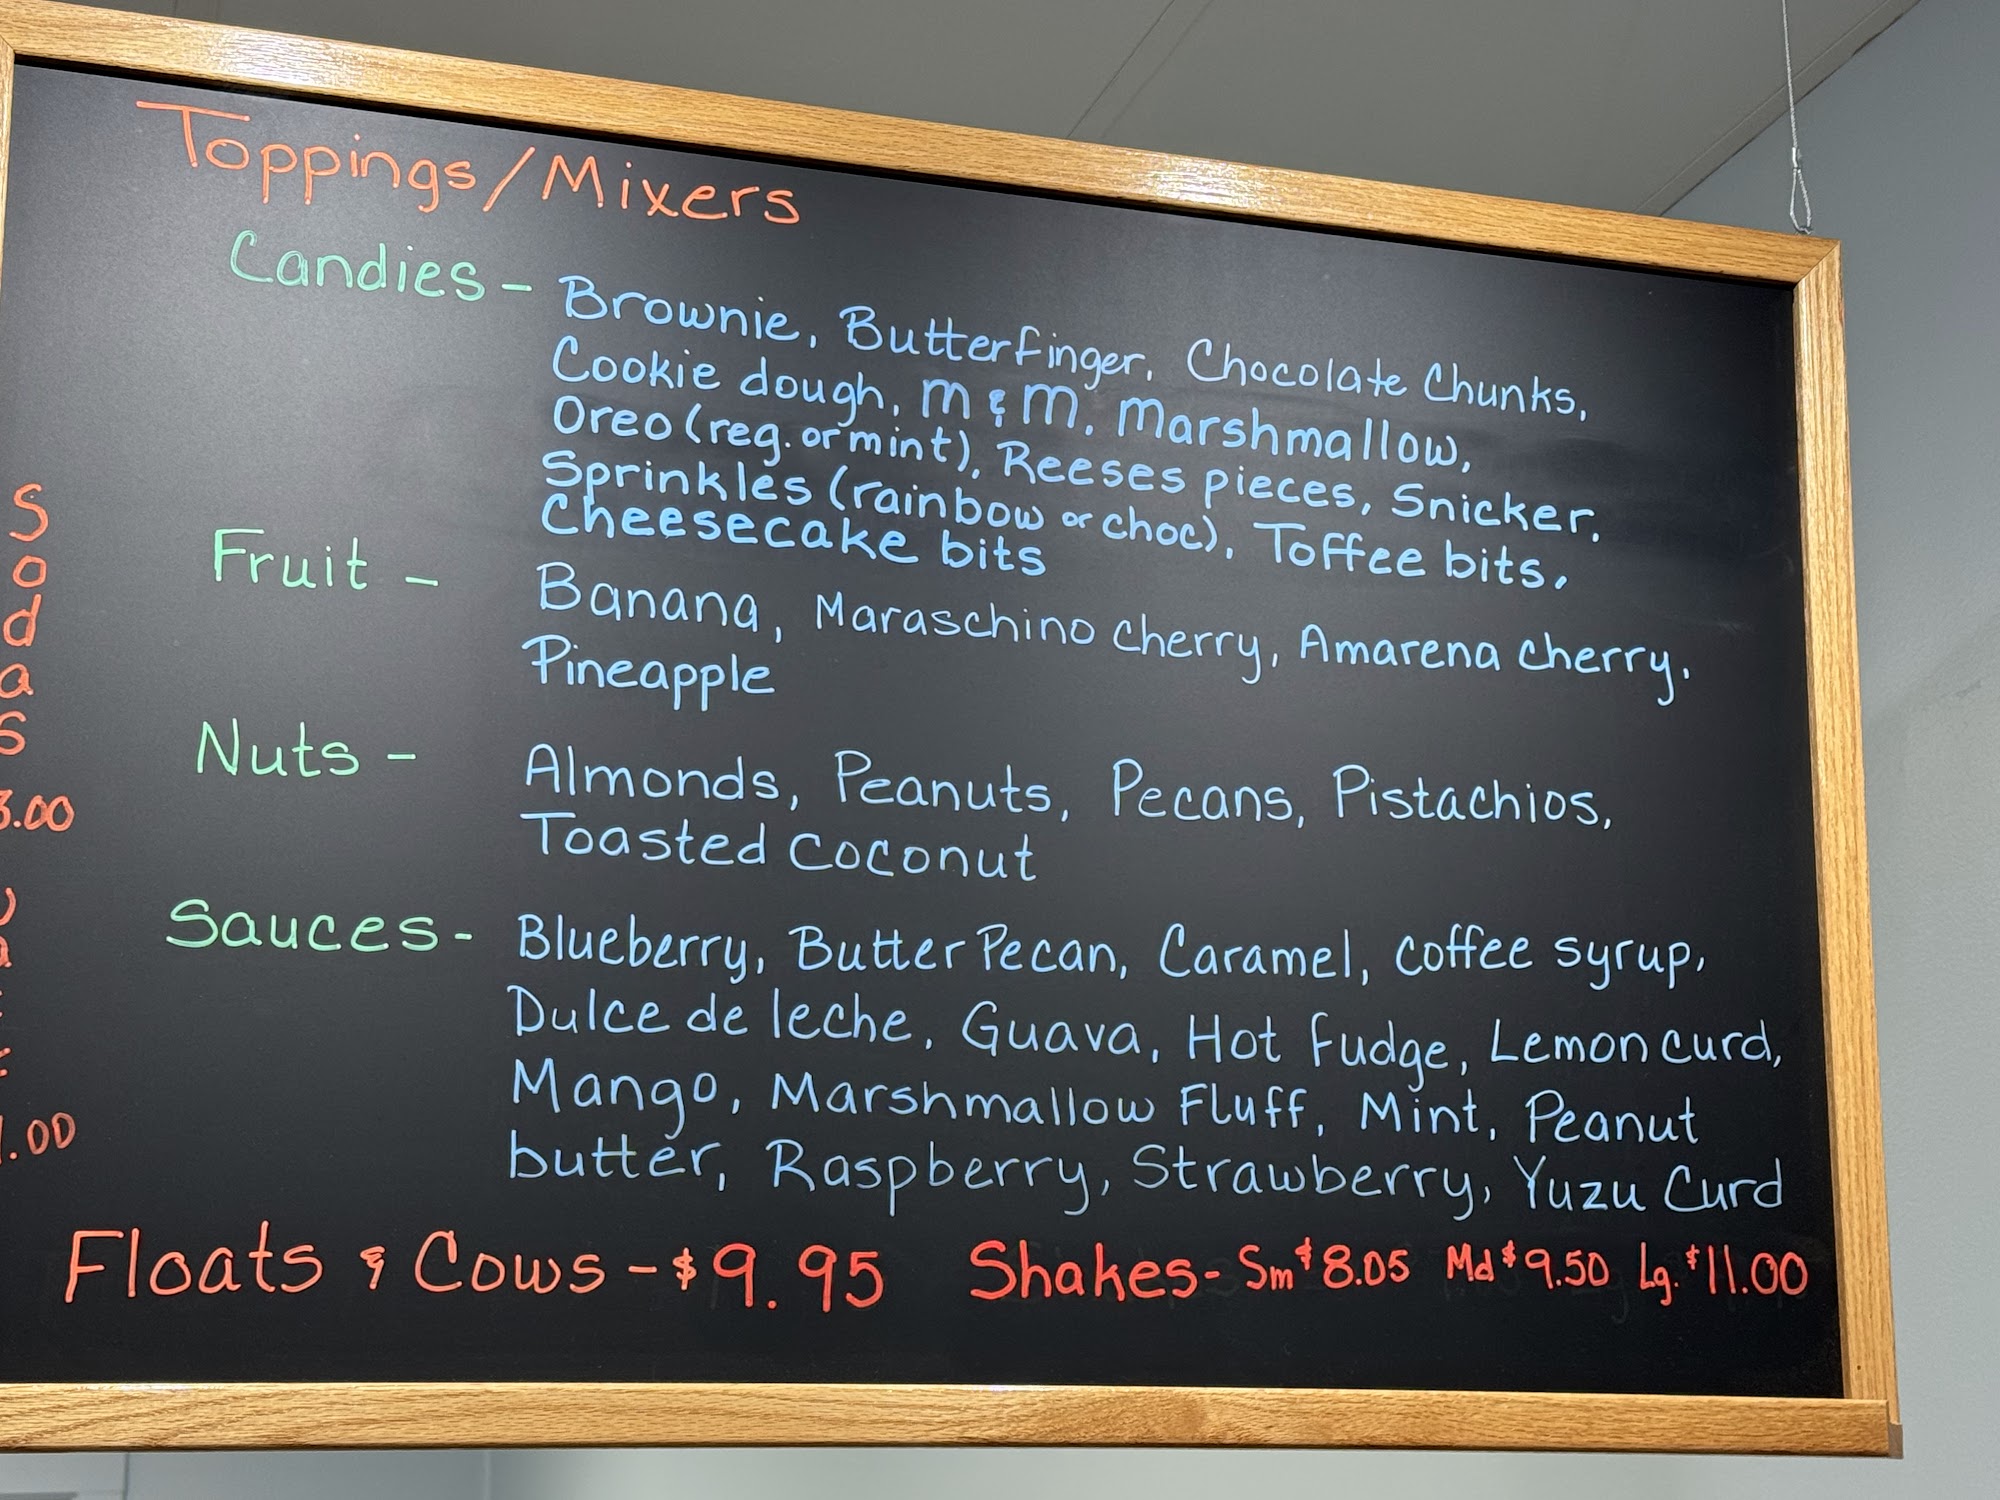 Toppings/Mixers
Candies - Brownie, Butterfinger, Chocolate Chunks,
Cookie dough, M & M, Marshmallow,
Oreo (reg. or mint), Reeses pieces, Snicker,
Sprinkles (rainbow or choc), Toffee bits,
Cheesecake bits
Fruit - Banana, Maraschino cherry, Amarena cherry,
Pineapple
Nuts - Almonds, Peanuts, Pecans, Pistachios,
Toasted coconut
Sauces - Blueberry, Butter Pecan, Caramel, coffee syrup,
Dulce de leche, Guava, Hot fudge, Lemon curd,
Mango, Marshmallow Fluff, Mint, Peanut
butter, Raspberry, Strawberry, Yuzu Curd
Floats & Cows - $9.95 Shakes - Sm $8.05 Md $9.50 Lg. $11.00
S
o
d
a
s
3.00
.00